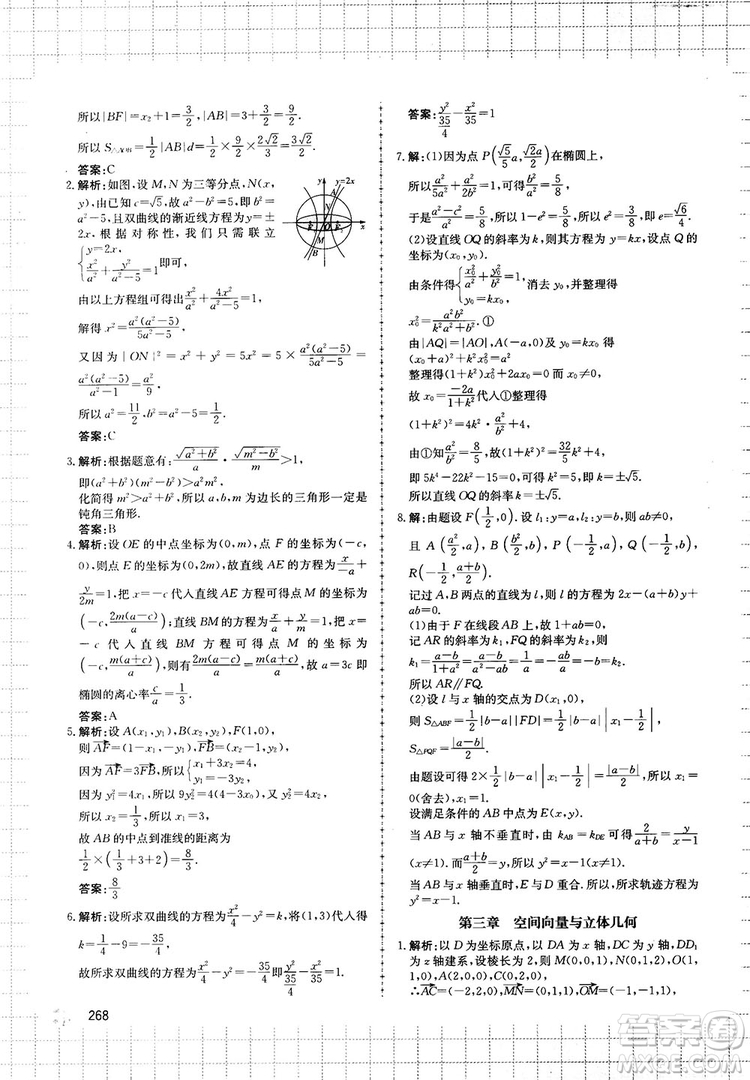 所以|BF|=x₂+1=3/2,|AB|=3+3/2=9/2.
所以 S△AOB=1/2|AB|d=1/2×9/2×2√2/3=3√2/2.
答案:C
2.解析:如图,设 M,N 为三等分点,N(x,
y),由已知 c=√5,故 a²-b²=5,b²=
a²-5,且双曲线的渐近线方程为 y=±
2x.根据对称性,我们只需联立
{y=2x,
x²/a²+y²/(a²-5)=1 即可,
由以上方程组可得出 x²/a²+4x²/(a²-5)=1,
解得 x²=a²(a²-5)/(5a²-5).
又因为|ON|²=x²+y²=5x²=5×a²(a²-5)/(5a²-5)=
a²(a²-5)/(a²-1)=a²/9.
所以 a²=11/2,b²=a²-5=1/2.
答案:C
3.解析:根据题意有:√(a²+b²)/a·√(m²-b²)/m>1,
即(a²+b²)(m²-b²)>a²m²,
化简得 m²>a²+b²,所以以 a,b,m 为边长的三角形一定是
钝角三角形.
答案:B
4.解析:设 OE 的中点坐标为(0,m),点 F 的坐标为(-c,
0),则点 E 的坐标为(0,2m),故直线 AE 的方程为 x/a+
y/2m=1,把 x=-c 代入直线 AE 方程可得 M 的坐标为
(-c,2m(a+c)/a);直线 BM 方程为 x/a+y/m=1,把 x
=-c 代入直线 BM 方程可得 M 的坐标为
(-c,m(a+c)/a),则有 2m(a-c)/a=m(a+c)/a,故 a=3c 即
椭圆的离心率 c/a=1/3.
答案:A
5.解析:设 A(x₁,y₁),B(x₂,y₂),F(1,0),
则AF=(1-x₁,-y₁),FB=(x₂-1,y₂),
因为AF=3FB,所以{x₁=4-3x₂,
y₁=-3y₂,
因为 y₁²=4x₁,所以 9y₂²=4(4-3x₂),又 y₂²=4x₂,
所以 x₂=1/3,所以 x₁=3,
故 AB 的中点到准线的距离为
1/2×(1/3+3+2)=8/3.
答案:8/3
6.解析:设所求双曲线的方程为 x²/4-y²=k,将(1,3)代入得
k=1/4-9=-35/4,
故所求双曲线的方程为 x²/4-y²=-35/4 即 y²/(35/4)-x²/35=1.
268
答案:y²/(35/4)-x²/35=1
7.解:(1)因为点 P(√5/5 a,√2/2 a)在椭圆上,
所以 a²/5a²+a²/2b²=1,可得 b²/a²=5/8,
于是(a²-c²)/a²=5/8,所以 1-e²=5/8,所以 e=√6/4.
(2)设直线 OQ 的斜率为 k,则其方程为 y=kx,设点 Q 的
坐标为(x₀,y₀).
由条件得{x₀²/a²+y₀²/b²=1,
y₀=kx₀, 消去 y₀,并整理得
x₀²=a²b²/(k²a²+b²).①
由|AQ|=|AO|,A(-a,0)及 y₀=kx₀ 得,
(x₀+a)²+k²x₀²=a²,
整理得(1+k²)x₀²+2ax₀=0,而 x₀≠0,
故 x₀=-2a/(1+k²)代入①整理得
(1+k²)²=4k²·a²/b²+4,
由①知 a²/b²=8/5,故(1+k²)²=32/5 k²+4,
即 5k⁴-22k²-15=0,可得 k²=5,
所以直线 OQ 的斜率 k=±√5.
8.解:由题设 F(1/2,0).设 l₁:y=a,l₂:y=b,则 ab≠0,
且 A(a²/2,a),B(b²/2,b),P(-1/2,a),Q(-1/2,b),
R(-1/2,(a+b)/2).
记过 A,B 两点的直线为 l,则 l 的方程为 2x-(a+b)y+
ab=0.
(1)由于 F 在线段 AB 上,故 1+ab=0.
记 AR 的斜率为 k₁,FQ 的斜率为 k₂,则
k₁=(a-b)/(1+a²)=(a-b)/(a²-ab)=1/a=-ab/a=-b=k₂.
所以 AR∥FQ.
(2)设 l 与 x 轴的交点为 D(x₁,0),
则 S△ABF=1/2|b-a||FD|=1/2|b-a||x₁-1/2|,
S△PQF=|a-b|/2.
由题设可得 2×1/2|b-a||x₁-1/2|=|a-b|/2,所以 x₁=
0(舍去),x₁=1.
设满足条件的 AB 的中点为 E(x,y).
当 AB 与 x 轴不垂直时,由 kAB=kDE 可得 2/(a+b)=y/(x-1)
(x≠1).而(a+b)/2=y,所以 y²=x-1(x≠1).
当 AB 与 x 轴垂直时,E 与 D 重合.所以所求轨迹方程为
y²=x-1.
第三章 空间向量与立体几何
1.解析:以 D 为坐标原点,以 DA 为 x 轴,DC 为 y 轴,DD₁
为 z 轴建系,设棱长为 2,则 M(0,0,1),N(0,1,2),O(1,
1,0),A(2,0,0),C(0,2,0),
∴AC=(-2,2,0),MN=(0,1,1),OM=(-1,-1,1),
答案圈
MXQE.COM